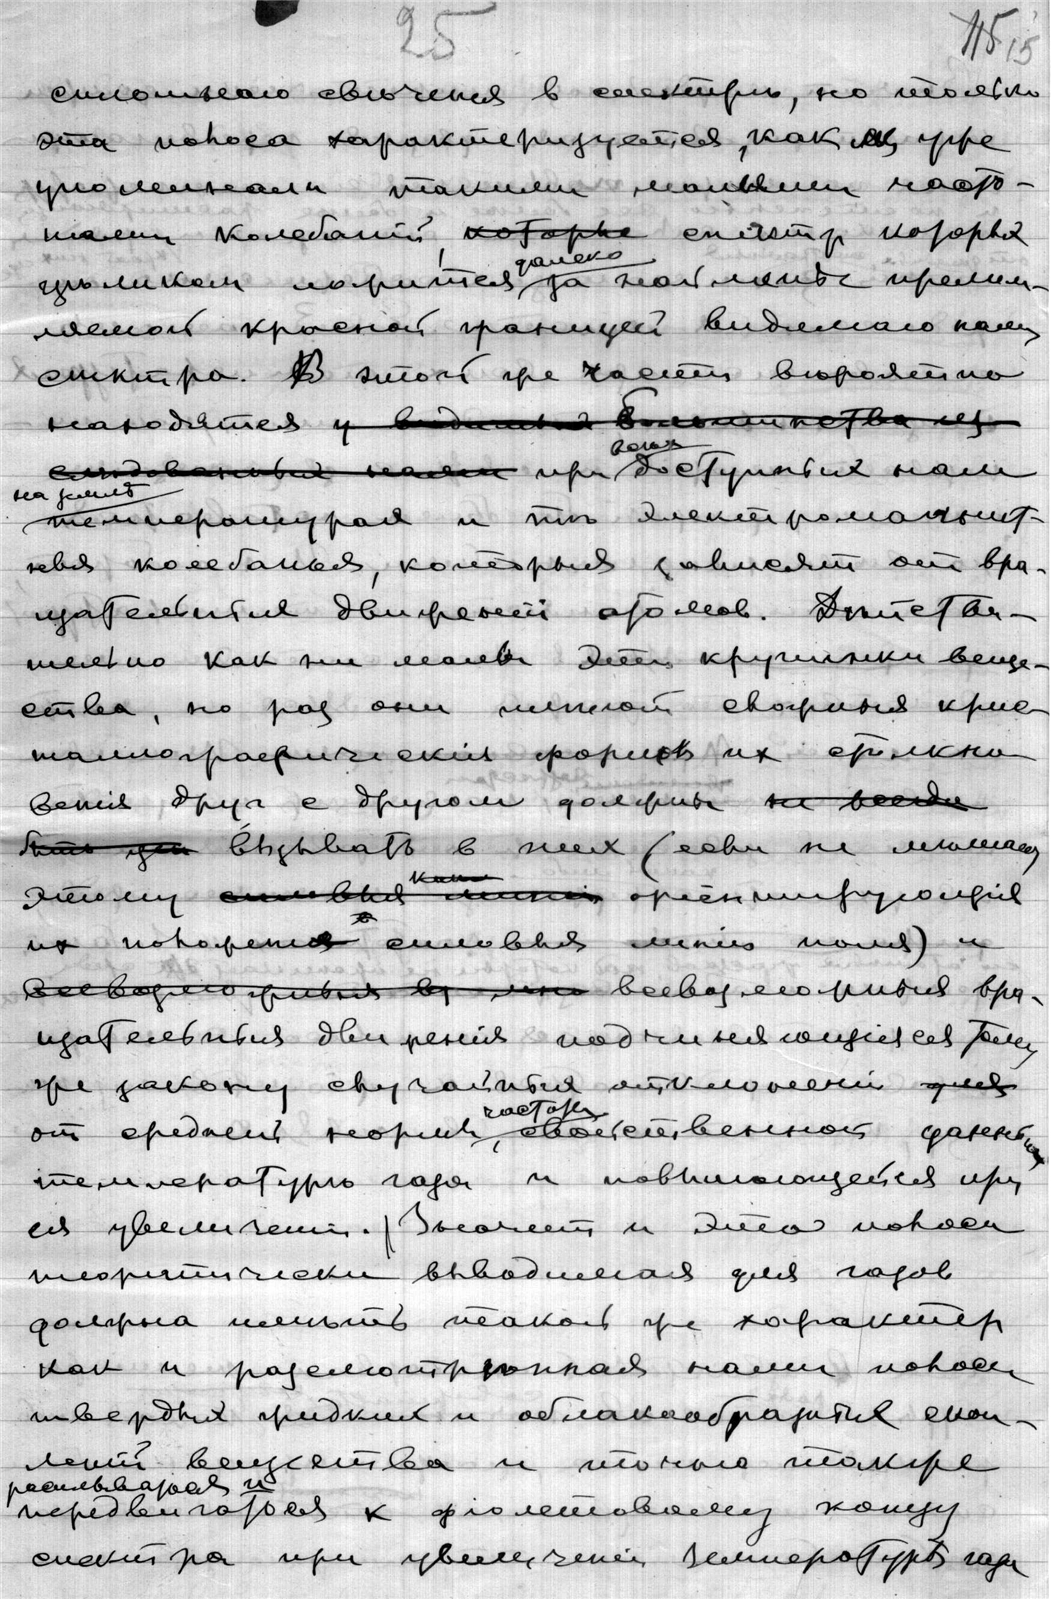 25
115 15
сплошнаго свечения в спектре, но только
эта полоса характеризуется, как мы уже
упоминали такими малыми часто-
тами колебаний, которые спектр которых
далеко
целиком ложится за наименее прелом-
ляемой красной границей видимаго нами
спектра. В этой же части вероятно
находятся у большинства из
следованных нами при доступных нам
на земле
температурах и те электромагнит-
ныя колебанья, которыя зависят от вра-
щательных движений атомов. Действи-
тельно как ни малы эти крупинки веще-
ства, но раз они имеют сложныя крис
таллографическия формы их столкно
вения друг с другом должны не всегда
быть вызывать в них (если не мешают
этому силовыя линии ориентирующия
их положения силовыя линии поля) и
всевозможныя всевозможныя вра-
щательныя движения подчиняющияся тому
же закону случайных отклонений для
частоты
от средней нормы, свойственной данной
температуре газа и повышающейся при
ея увеличении. Значит и эта полоса
теоритически выводимая для газов
должна иметь такой же характер
как и разсмотренная нами полоса
твердых жидких и облакообразных скоп-
лений вещества и точно также
расплываясь и
передвигаться к фиолетовому концу
спектра при увеличении температуры газа